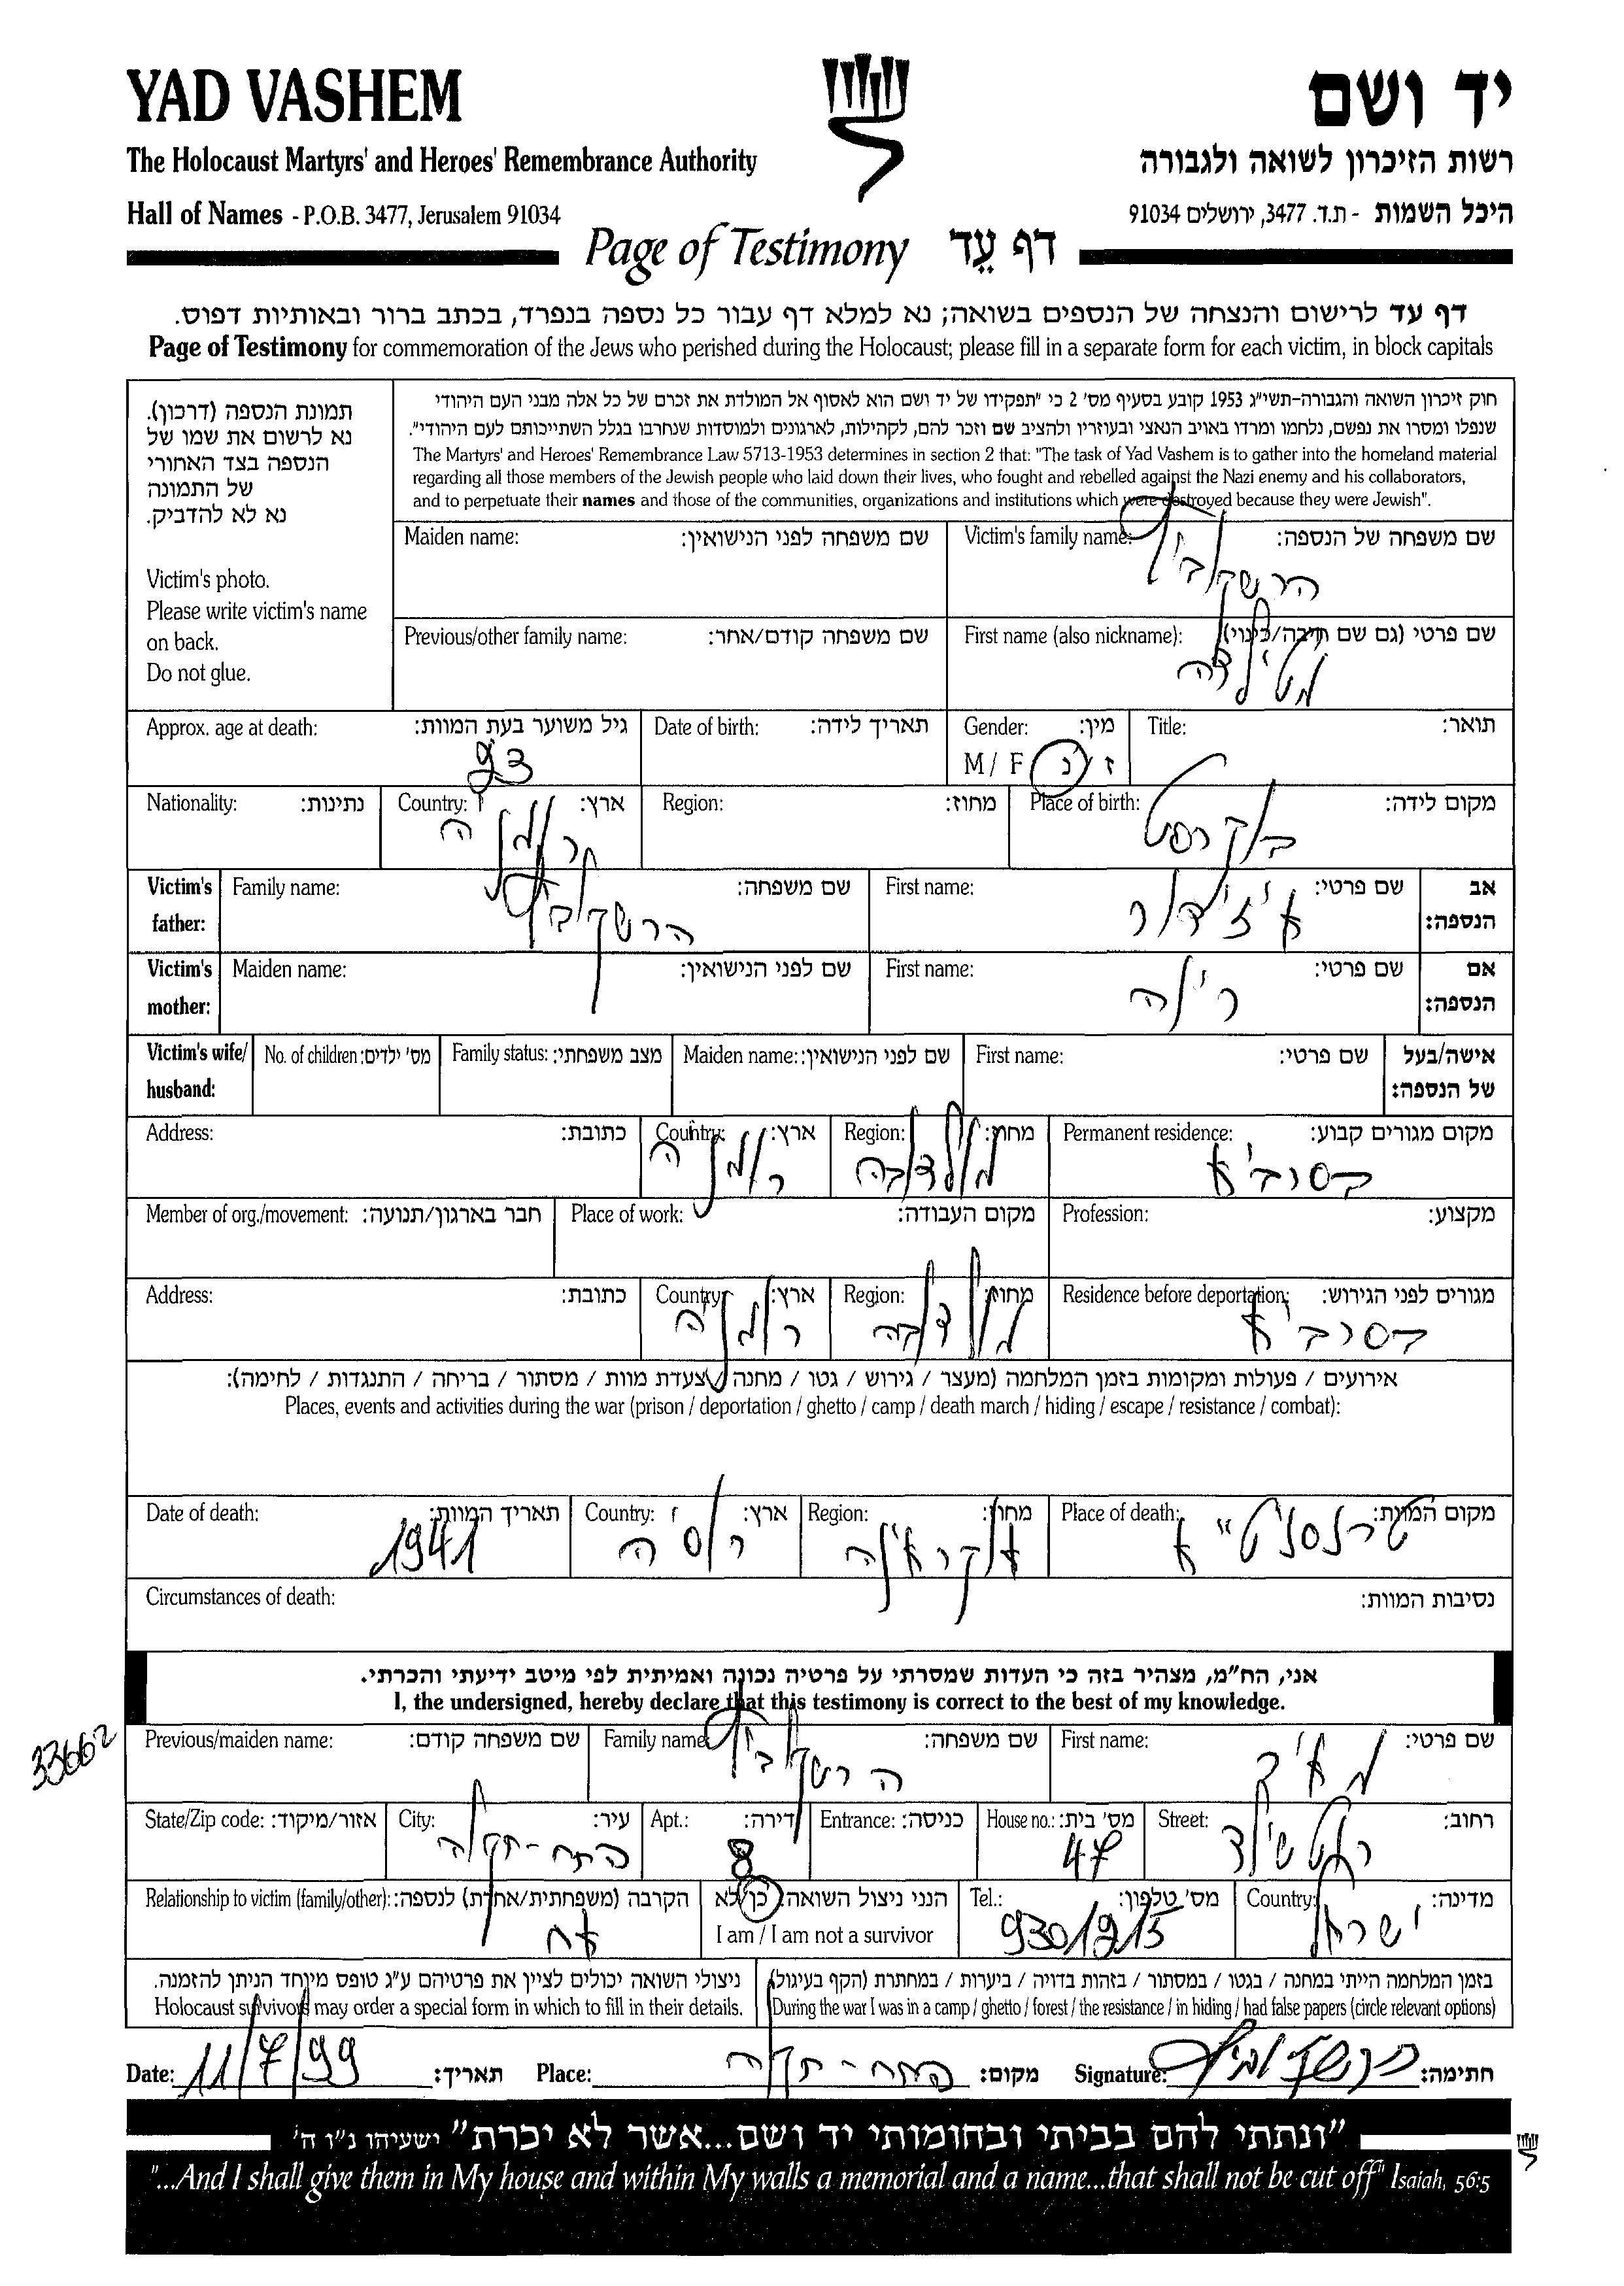 YAD VASHEM
יד ושם
The Holocaust Martyrs' and Heroes' Remembrance Authority
רשות הזיכרון לשואה ולגבורה
Hall of Names - P.O.B. 3477, Jerusalem 91034
היכל השמות - ת.ד. 3477, ירושלים 91034
Page of Testimony דף עֵד
דף עד לרישום והנצחה של הנספים בשואה; נא למלא דף עבור כל נספה בנפרד, בכתב ברור ובאותיות דפוס.
Page of Testimony for commemoration of the Jews who perished during the Holocaust; please fill in a separate form for each victim, in block capitals
תמונת הנספה (דרכון).
נא לרשום את שמו של
הנספה בצד האחורי
של התמונה
נא לא להדביק.
Victim's photo.
Please write victim's name
on back.
Do not glue.
חוק זיכרון השואה והגבורה-תשי"ג 1953 קובע בסעיף מס' 2 כי "תפקידו של יד ושם הוא לאסוף אל המולדת את זכרם של כל אלה מבני העם היהודי
שנפלו ומסרו את נפשם, נלחמו ומרדו באויב הנאצי ובעוזריו ולהציב שם וזכר להם, לקהילות, לארגונים ולמוסדות שנחרבו בגלל השתייכותם לעם היהודי".
The Martyrs' and Heroes' Remembrance Law 5713-1953 determines in section 2 that: "The task of Yad Vashem is to gather into the homeland material
regarding all those members of the Jewish people who laid down their lives, who fought and rebelled against the Nazi enemy and his collaborators,
and to perpetuate their names and those of the communities, organizations and institutions which were destroyed because they were Jewish".
Victim's family name: שם משפחה של הנספה:
הרשקוביץ
Maiden name: שם משפחה לפני הנישואין:
First name (also nickname): שם פרטי (גם שם חיבה/כינוי)
מטילדה
Previous/other family name: שם משפחה קודם/אחר:
Title: תואר:
Gender: מין:
M / F ז / נ
Date of birth: תאריך לידה:
Approx. age at death: גיל משוער בעת המוות:
Place of birth: מקום לידה:
בוקרסט
Region: מחוז:
Country: ארץ:
רומניה
Nationality: נתינות:
Victim's father: אב הנספה:
First name: שם פרטי:
איזידור
Family name: שם משפחה:
הרשקוביץ
Victim's mother: אם הנספה:
First name: שם פרטי:
Maiden name: שם לפני הנישואין:
Victim's wife/ husband: אישה/בעל של הנספה:
First name: שם פרטי:
Maiden name: שם לפני הנישואין:
Family status: מצב משפחתי:
No. of children: מס' ילדים:
Permanent residence: מקום מגורים קבוע:
Region: מחוז:
מולדובה
Country: ארץ:
רומניה
Address: כתובת:
Profession: מקצוע:
Place of work: מקום העבודה:
Member of org./movement: חבר בארגון/תנועה:
Residence before deportation: מגורים לפני הגירוש:
Region: מחוז:
מולדובה
Country: ארץ:
רומניה
Address: כתובת:
אירועים / פעולות ומקומות בזמן המלחמה (מעצר / גירוש / גטו / מחנה / צעדת מוות / מסתור / בריחה / התנגדות / לחימה):
Places, events and activities during the war (prison / deportation / ghetto / camp / death march / hiding / escape / resistance / combat):
Place of death: מקום המוות:
Region: מחוז:
Country: ארץ:
רוסיה
Date of death: תאריך המוות:
1941
Circumstances of death: נסיבות המוות:
אני, הח"מ, מצהיר בזה כי העדות שמסרתי על פרטיה נכונה ואמיתית לפי מיטב ידיעתי והכרתי.
I, the undersigned, hereby declare that this testimony is correct to the best of my knowledge.
33662
First name: שם פרטי:
Family name: שם משפחה:
הרשקוביץ
Previous/maiden name: שם משפחה קודם:
Street: רחוב:
רוטשילד
House no.: מס' בית:
47
Entrance: כניסה:
Apt.: דירה:
8
City: עיר:
פתח-תקוה
State/Zip code: אזור/מיקוד:
Country: מדינה:
ישראל
Tel.: מס' טלפון:
9301913
הנני ניצול השואה: כן/לא
I am / I am not a survivor
Relationship to victim (family/other): הקרבה (משפחתית/אחרת) לנספה:
אח
בזמן המלחמה הייתי במחנה / בגטו / במסתור / בזהות בדויה / ביערות / במחתרת (הקף בעיגול)
During the war I was in a camp / ghetto / forest / the resistance / in hiding / had false papers (circle relevant options)
ניצולי השואה יכולים לציין את פרטיהם ע"ג טופס מיוחד הניתן להזמנה.
Holocaust survivors may order a special form in which to fill in their details.
Date: 11/7/99 תאריך:
Place: פתח-תקוה מקום:
Signature: הרשקוביץ חתימה:
"ונתתי להם בביתי ובחומותי יד ושם...אשר לא יכרת" ישעיהו נ"ו ה'
"...And I shall give them in My house and within My walls a memorial and a name...that shall not be cut off" Isaiah, 56:5